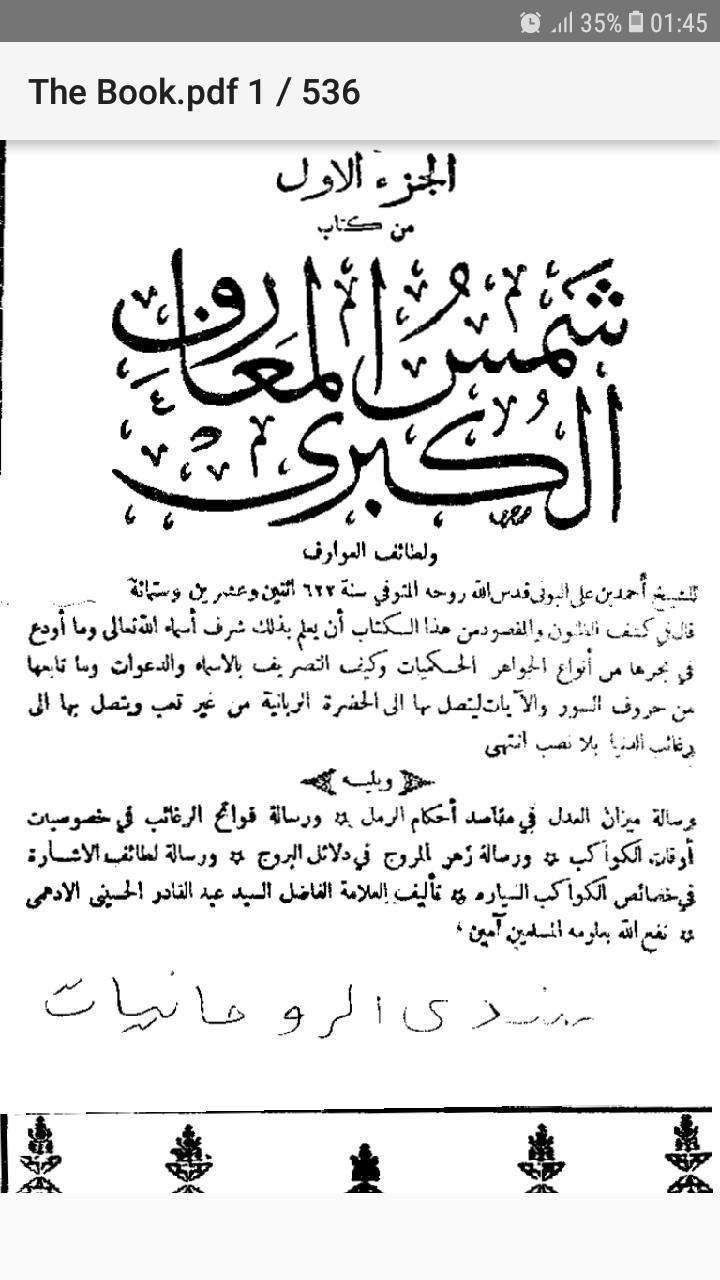 35% 01:45
The Book.pdf 1 / 536
الجزء الاول
من كتاب
شمس المعارف
الكبرى
ولطائف العوارف
للشيخ أحمد بن علي البونى قدس الله روحه المتوفي سنة ٦٢٢ اثنين وعشرين وستمائة
قال في كشف الظنون والمقصود من هذا الكتاب أن يعلم بذلك شرف أسماء الله تعالى وما أودع
في بحرها من أنواع الجواهر الحكميات وكيف التصريف بالاسماء والدعوات وما تابعها
من حروف السور والآيات ليتصل بها الى الحضرة الربانية من غير تعب ويتصل بها الى
رغائب الدنيا بلا نصب انتهى
ويليه
رسالة ميزان العدل في مقاصد أحكام الرمل ورسالة فواتح الرغائب في خصوصيات
أوقات الكواكب ورسالة زهر المروج في دلائل البروج ورسالة لطائف الاشارة
في خصائص الكواكب السياره تأليف العلامة الفاضل السيد عبد القادر الحسينى الادهمى
نفع الله بعلومه المسلمين آمين
الروحانيات